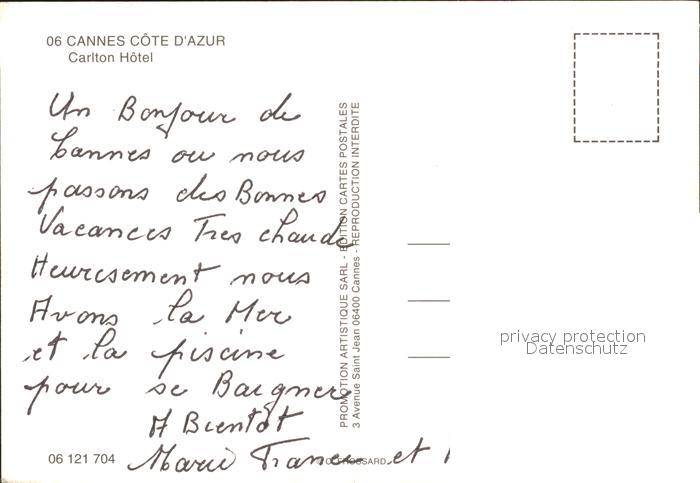 06 CANNES CÔTE D'AZUR
Carlton Hôtel
Un Bonjour de
Cannes ou nous
passons des Bonnes
Vacances Tres chaude
Heuresement nous
Avons la Mer
et la piscine
pour se Baigner
A Bientôt
Marie France et
06 121 704
PROMOTION ARTISTIQUE SARL - EDITION CARTES POSTALES
3 Avenue Saint Jean 06400 Cannes - REPRODUCTION INTERDITE
privacy protection
Datenschutz